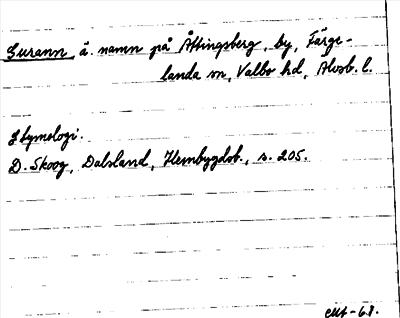 Surann, ä. namn på Åttingsberg, by, Färge-
landa sn, Valbo hd, Älvsb. l.
Etymologi.
D. Skoog, Dalsland, Hembygdsb., s. 205.
-68.